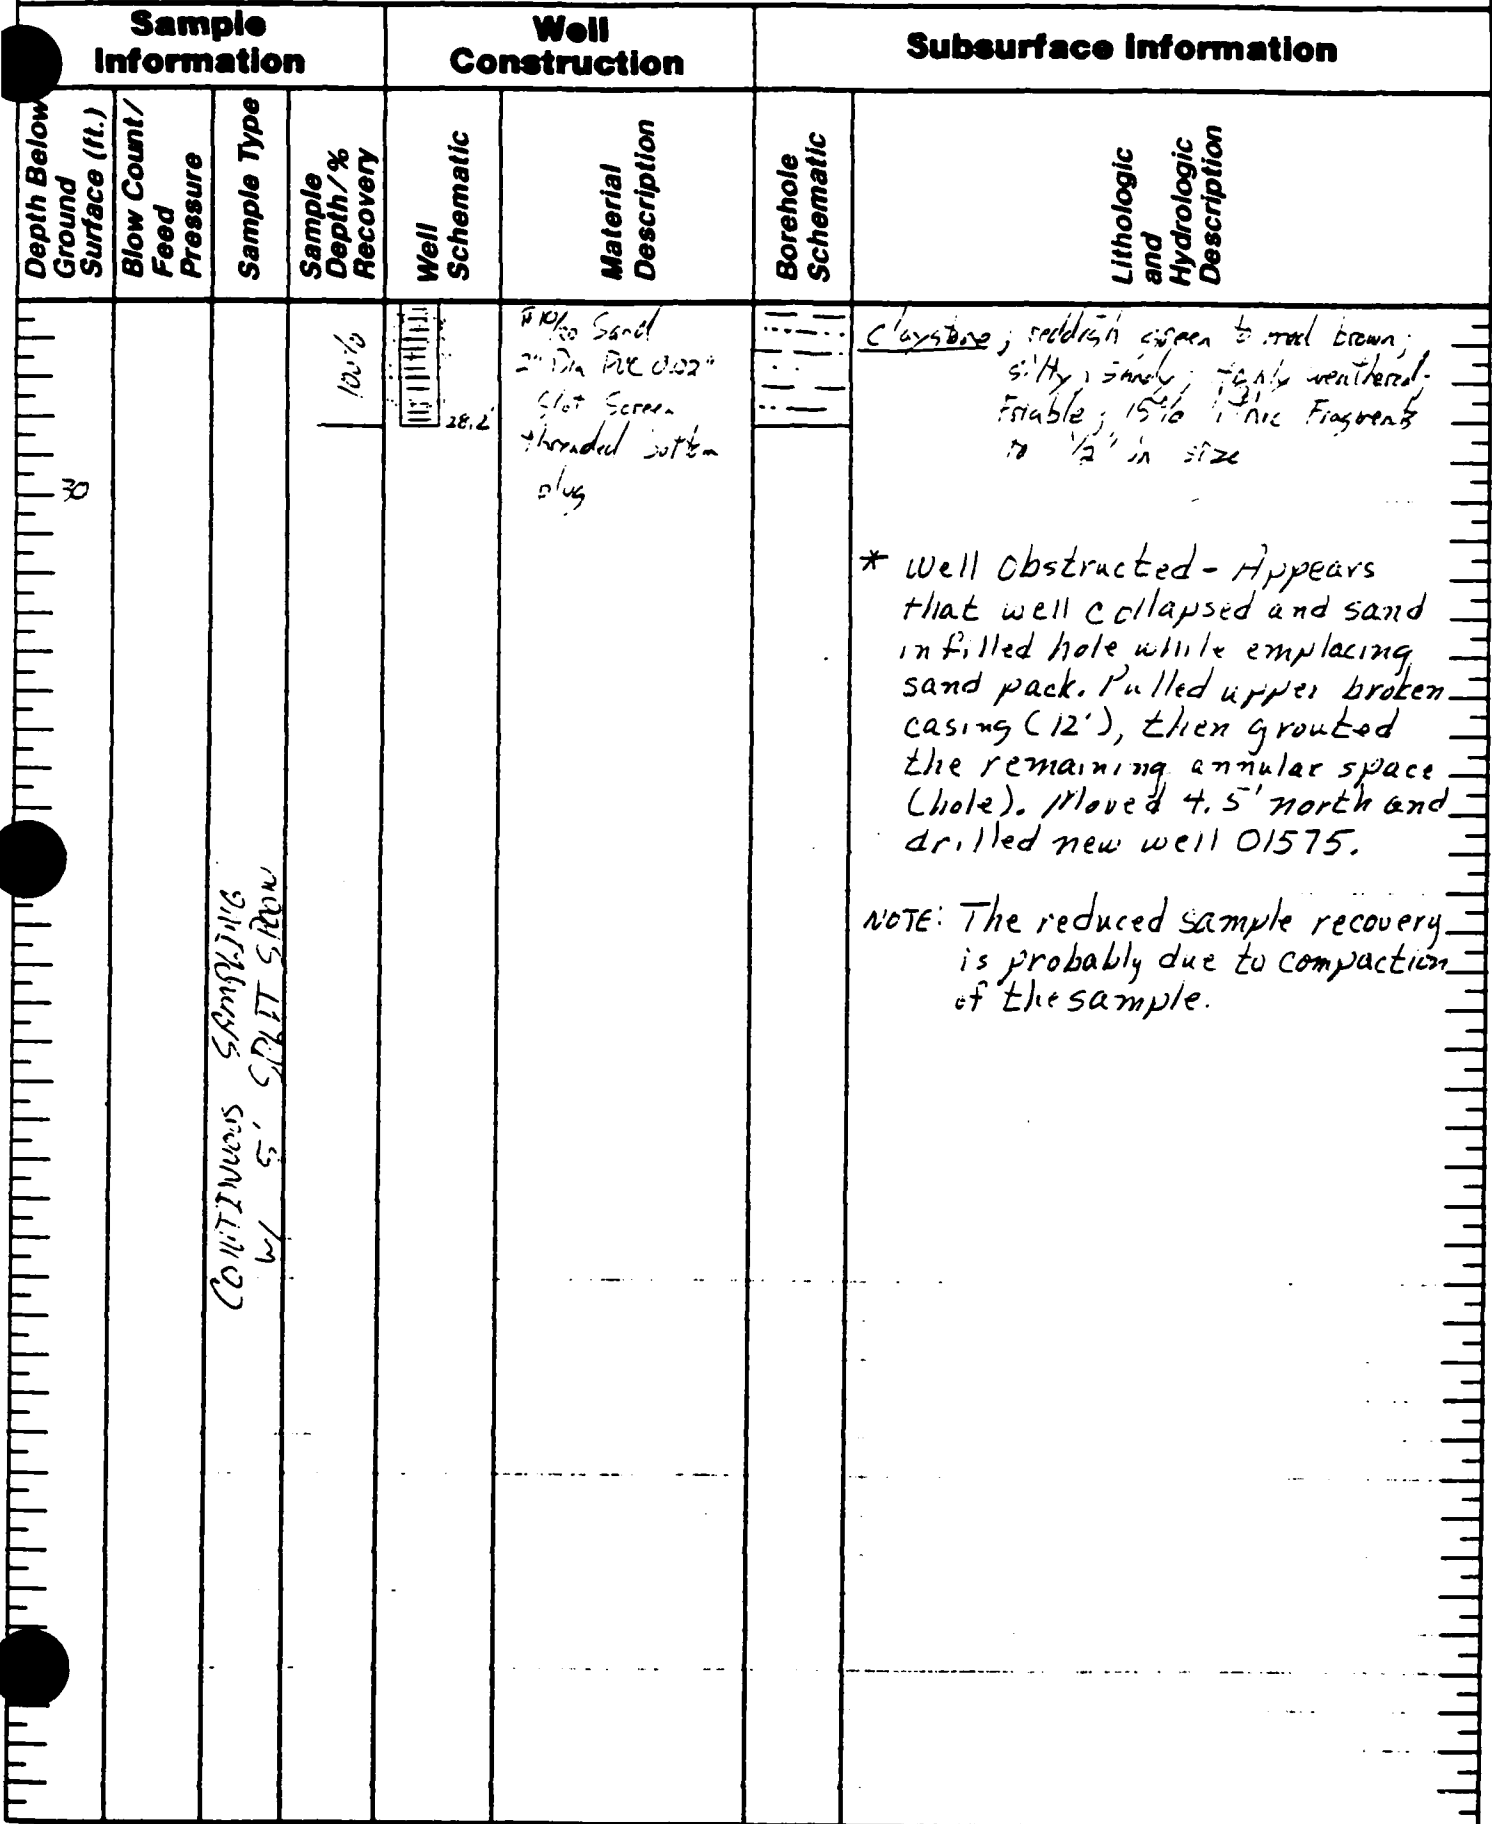 Sample Information
Well Construction
Subsurface Information
Depth Below
Ground
Surface (ft.)
Blow Count/
Feed
Pressure
Sample Type
Sample
Depth/%
Recovery
Well
Schematic
Material
Description
Borehole
Schematic
Lithologic
and
Hydrologic
Description
30
CONTINUOUS SAMPLING
W/ 5' SPLIT SPOON
100%
28.2'
#10/20 Sand
2" Dia PVC 0.02"
Slot Screen
threaded bottom
plug
Claystone; reddish green to red brown;
silty, sandy; weathered;
Friable; 15% Fragments
to 1/2" in size
* Well Obstructed - Appears
that well collapsed and sand
infilled hole while emplacing
sand pack. Pulled upper broken
casing (12'), then grouted
the remaining annular space
(hole). Moved 4.5' north and
drilled new well 01575.
NOTE: The reduced sample recovery
is probably due to compaction
of the sample.